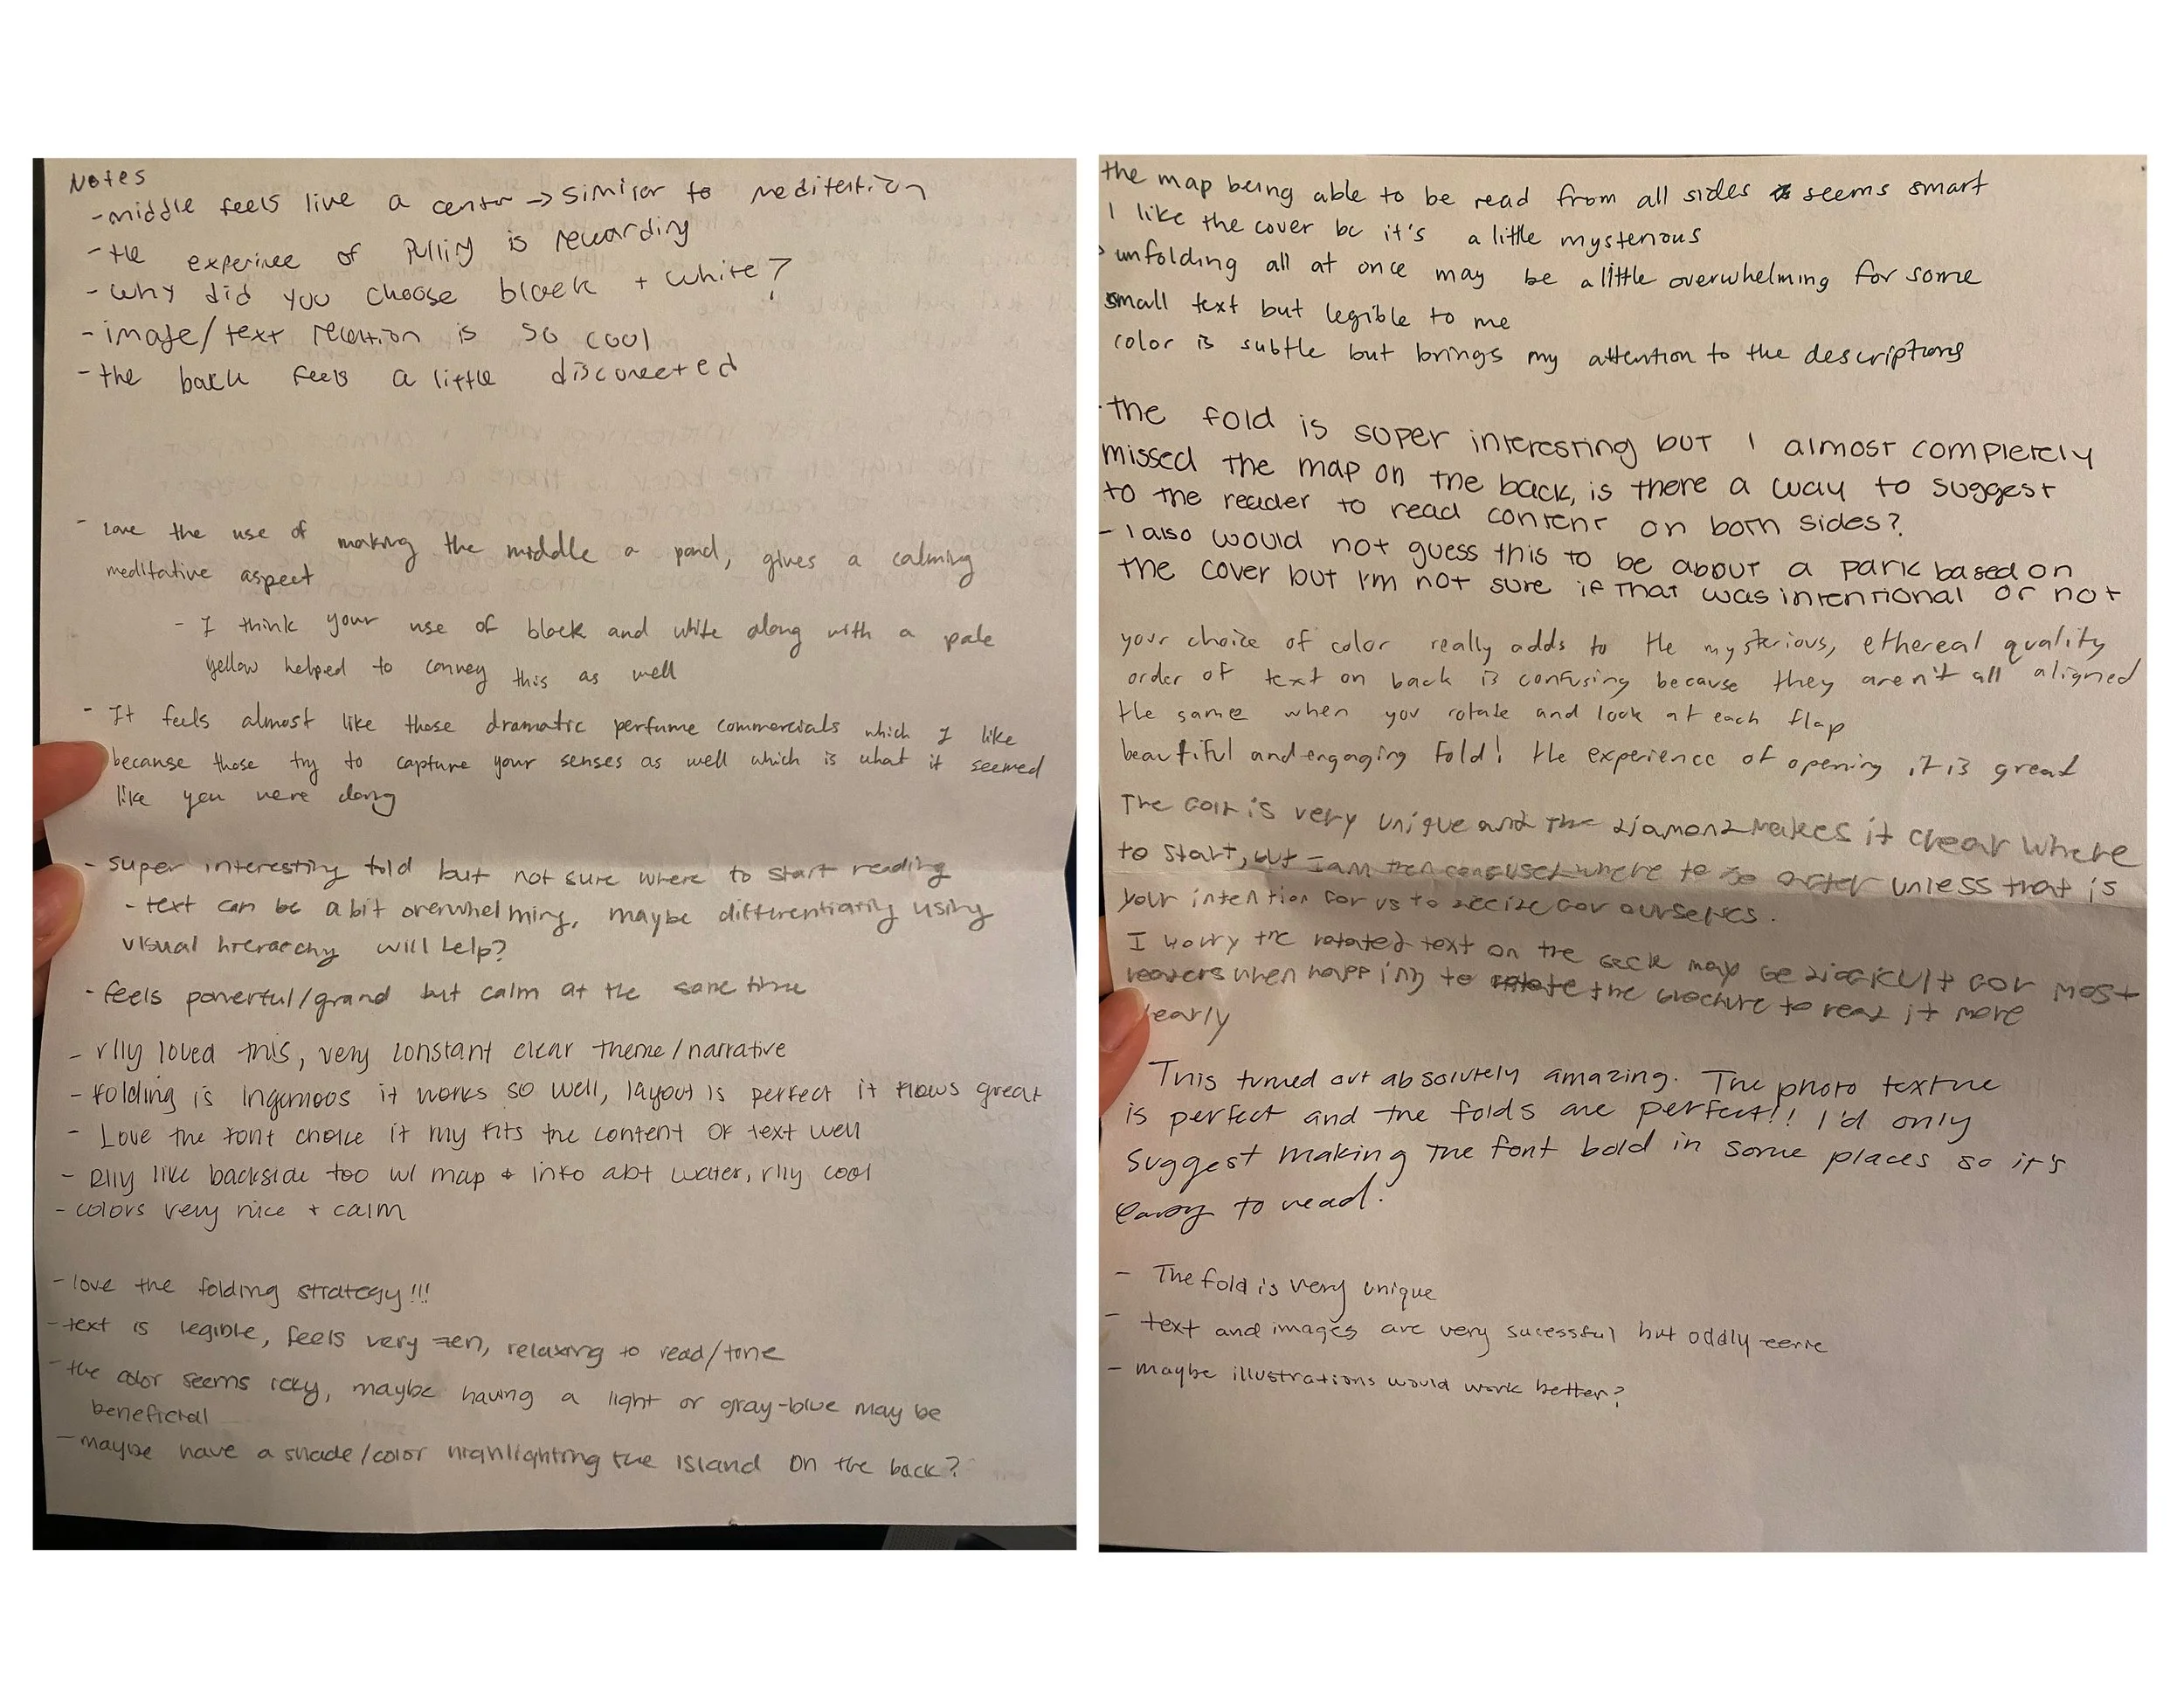 Notes
- middle feels live a center → similar to meditation
- the experince of pulling is rewarding
- why did you choose black + white?
- image/text relation is so cool
- the back feels a little disconected
- love the use of making the middle a pond, gives a calming
meditative aspect
- I think your use of black and white along with a pale
yellow helped to convey this as well
- It feels almost like those dramatic perfume commercials which I like
because those try to capture your senses as well which is what it seemed
like you were doing
- super interesting fold but not sure where to start reading
- text can be a bit overwhelming, maybe differentiating using
visual hierarchy will help?
- feels powerful/grand but calm at the same time
- rlly loved this, very constant clear theme/narrative
- folding is ingenious it works so well, layout is perfect it flows great
- Love the font choice it rlly fits the content of text well
- Rlly like backside too w/ map + info abt water, rlly cool
- colors very nice + calm
- love the folding strategy!!!
- text is legible, feels very zen, relaxing to read/tone
- the color seems icky, maybe having a light or gray-blue may be
beneficial
- maybe have a shade/color highlighting the island on the back?
the map being able to be read from all sides seems smart
I like the cover bc it's a little mysterious
unfolding all at once may be a little overwhelming for some
small text but legible to me
color is subtle but brings my attention to the descriptions
· the fold is super interesting but I almost completely
missed the map on the back, is there a way to suggest
to the reader to read content on both sides?
- I also would not guess this to be about a park based on
the cover but I'm not sure if that was intentional or not
your choice of color really adds to the mysterious, ethereal quality
order of text on back is confusing because they aren't all aligned
the same when you rotate and look at each flap
beautiful and engaging fold! the experience of opening it is great
The fold is very unique and the diamond makes it clear where
to start, but I am then confused where to go after unless that is
your intention for us to decide for ourselves.
I worry the rotated text on the back may be difficult for most
readers when having to rotate the brochure to read it more
clearly
This turned out absolutely amazing. The photo texture
is perfect and the folds are perfect!! I'd only
suggest making the font bold in some places so it's
easy to read.
- The fold is very unique
- text and images are very sucessful but oddly eerie
- maybe illustrations would work better?